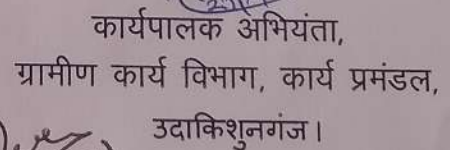 कार्यपालक अभियंता,
ग्रामीण कार्य विभाग, कार्य प्रमंडल,
उदाकिशुनगंज।